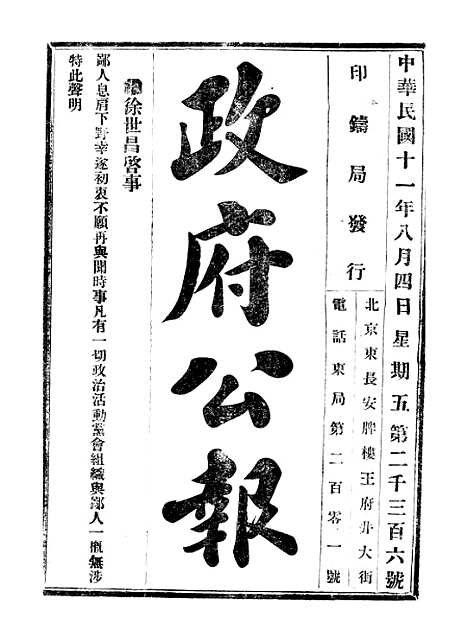 中華民國十一年八月四日星期五第二千三百六號
印鑄局發行
北京東長安牌樓王府井大街
電話東局第二百零一號
政府公報
徐世昌啓事
鄙人息肩下野幸遂初衷不願再與聞時事凡有一切政治活動黨會組織與鄙人一概無涉
特此聲明